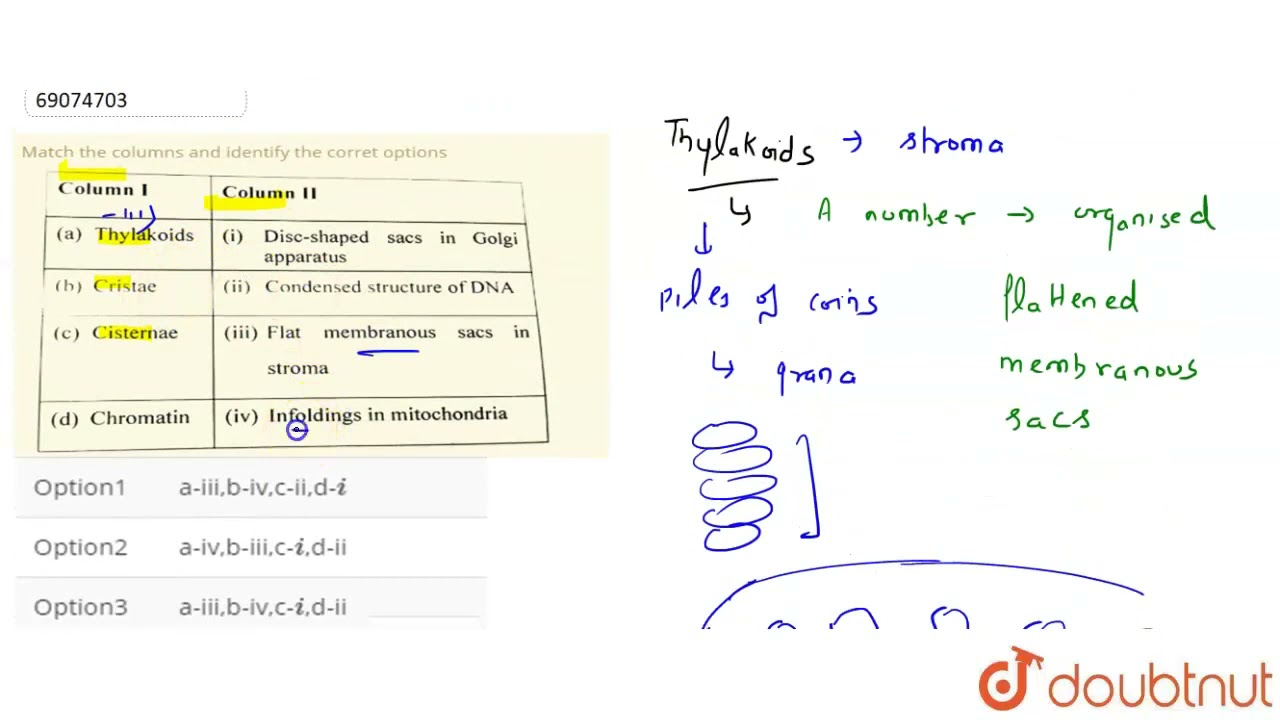 69074703
Match the columns and identify the corret options
Column I Column II
-iii)
(a) Thylakoids (i) Disc-shaped sacs in Golgi
apparatus
(b) Cristae (ii) Condensed structure of DNA
(c) Cisternae (iii) Flat membranous sacs in
stroma
(d) Chromatin (iv) Infoldings in mitochondria
Option1 a-iii,b-iv,c-ii,d-i
Option2 a-iv,b-iii,c-i,d-ii
Option3 a-iii,b-iv,c-i,d-ii
Thylakoids → stroma
↳ A number → organised
↓
piles of coins flattened
↳ grana membranous
sacs
doubtnut